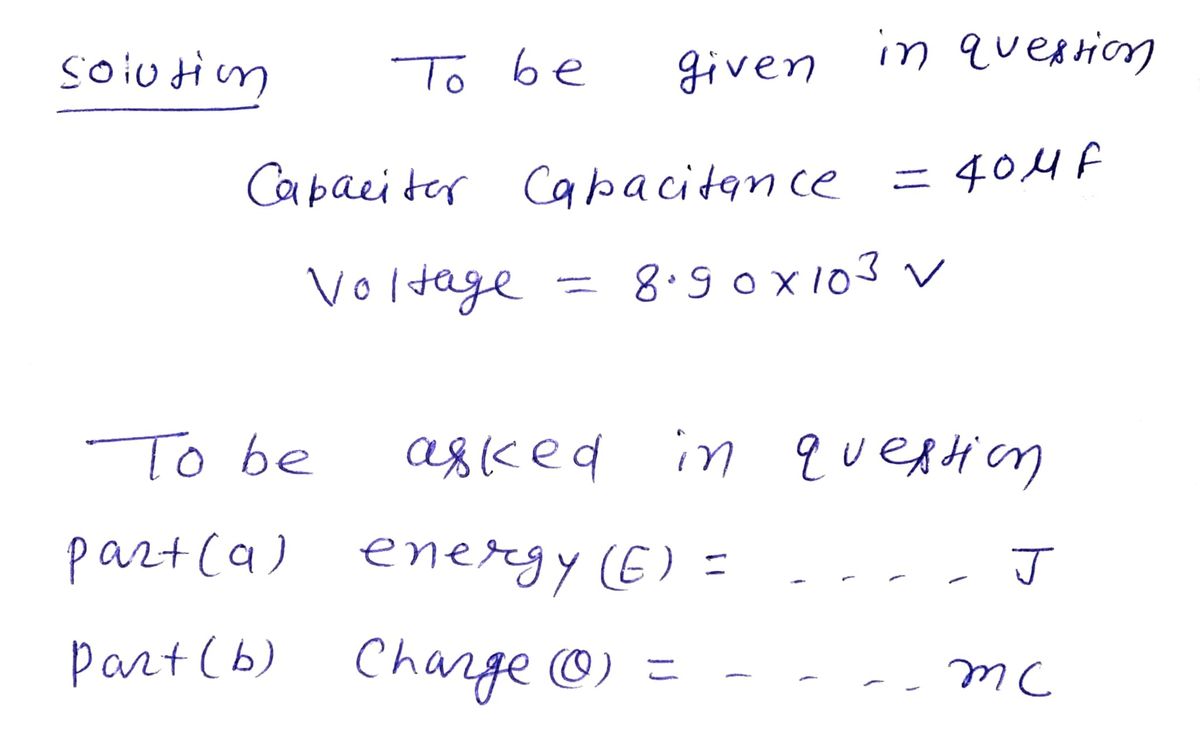 Solution To be given in question
Capacitor Capacitance = 40 μF
Voltage = 8.90 x 10³ V
To be asked in question
part(a) energy (E) = - - - - J
Part(b) Charge (Q) = - - - - mC